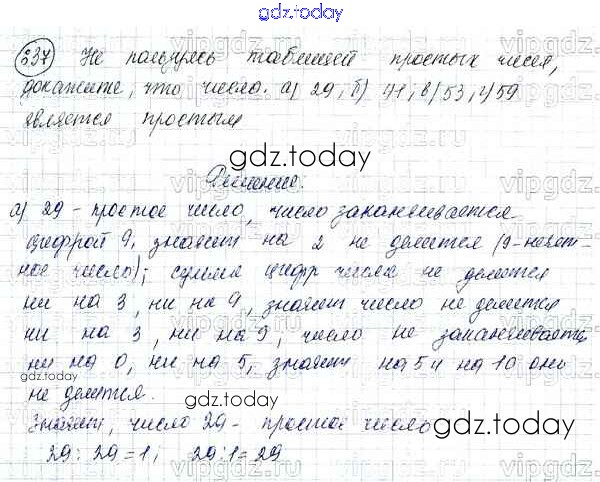 gdz.today
637 Не пользуясь таблицей простых чисел,
докажите, что число: а) 29; б) 41; в) 53; г) 59
является простым
gdz.today
Решение.
а) 29 - простое число, число заканчивается
цифрой 9, значит на 2 не делится (9-нечет-
ное число); сумма цифр числа не делится
ни на 3, ни на 9, значит число не делится
ни на 3, ни на 9, число не заканчивается
ни на 0, ни на 5, значит на 5 и на 10 оно
не делится.
gdz.today
Значит, число 29 - простое число
29 : 29 = 1; 29 : 1 = 29
gdz.today